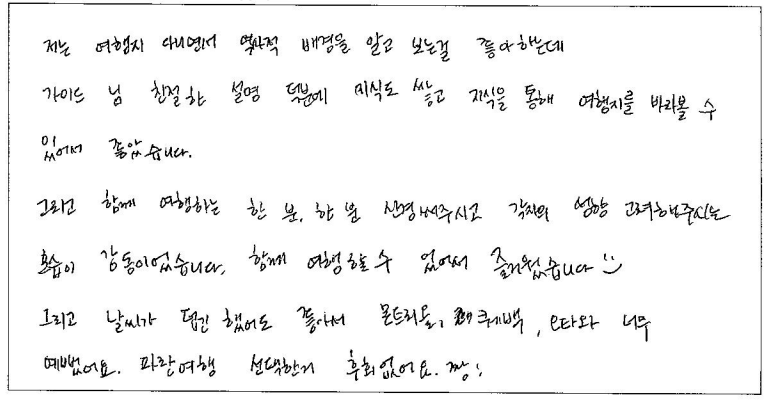 저는 여행지 다니면서 역사적 배경을 알고 보는걸 좋아하는데
가이드 님 친절한 설명 덕분에 지식도 쌓고 지식을 통해 여행지를 바라볼 수
있어서 좋았습니다.
그리고 함께 여행하는 한 분, 한 분 신경써주시고 각자의 성향 고려해주시는
모습이 감동이었습니다. 함께 여행할 수 있어서 즐거웠습니다
그리고 날씨가 덥긴 했어도 좋아서 몬트리올, 퀘백, 오타와 너무
예뻤어요. 파란여행 선택한거 후회없어요. 짱!